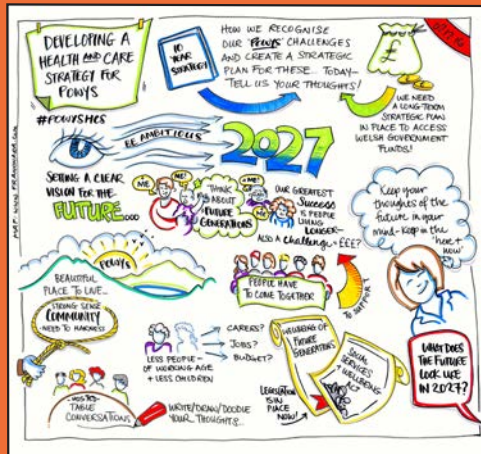 DEVELOPING A
HEALTH AND CARE
STRATEGY FOR
POWYS
#POWYSHCS
10
YEAR
STRATEGY
HOW WE RECOGNISE
OUR 'POWYS' CHALLENGES
AND CREATE A STRATEGIC
PLAN FOR THESE... TODAY-
TELL US YOUR THOUGHTS!
£
WE NEED
A LONG TERM
STRATEGIC PLAN
IN PLACE TO ACCESS
WELSH GOVERNMENT
FUNDS!
BE AMBITIOUS
2027
SETTING A CLEAR
VISION FOR THE
FUTURE....
ME
ME!
ME!
THINK
ABOUT
FUTURE
GENERATIONS
OUR GREATEST
Success
IS PEOPLE
LIVING
LONGER-
ALSO A Challenge - £££?
Keep your
thoughts of the
future in your
mind-keep in the
'here +
now'
POWYS
BEAUTIFUL
PLACE TO LIVE...
STRONG SENSE
COMMUNITY
NEED TO HARNESS
PEOPLE HAVE
TO COME TOGETHER
TO SUPPORT
LESS PEOPLE-
OF WORKING AGE
+ LESS CHILDREN
CARERS?
JOBS?
BUDGET?
WELLBEING OF
FUTURE
GENERATIONS
SOCIAL
SERVICES
+ WELLBEING
ACT
LEGISLATION
IS IN
PLACE
NOW!
WHAT DOES
THE FUTURE
LOOK LIKE
IN 2027?
HOSTED
TABLE
CONVERSATIONS
WRITE/DRAW/DOODLE
YOUR THOUGHTS...